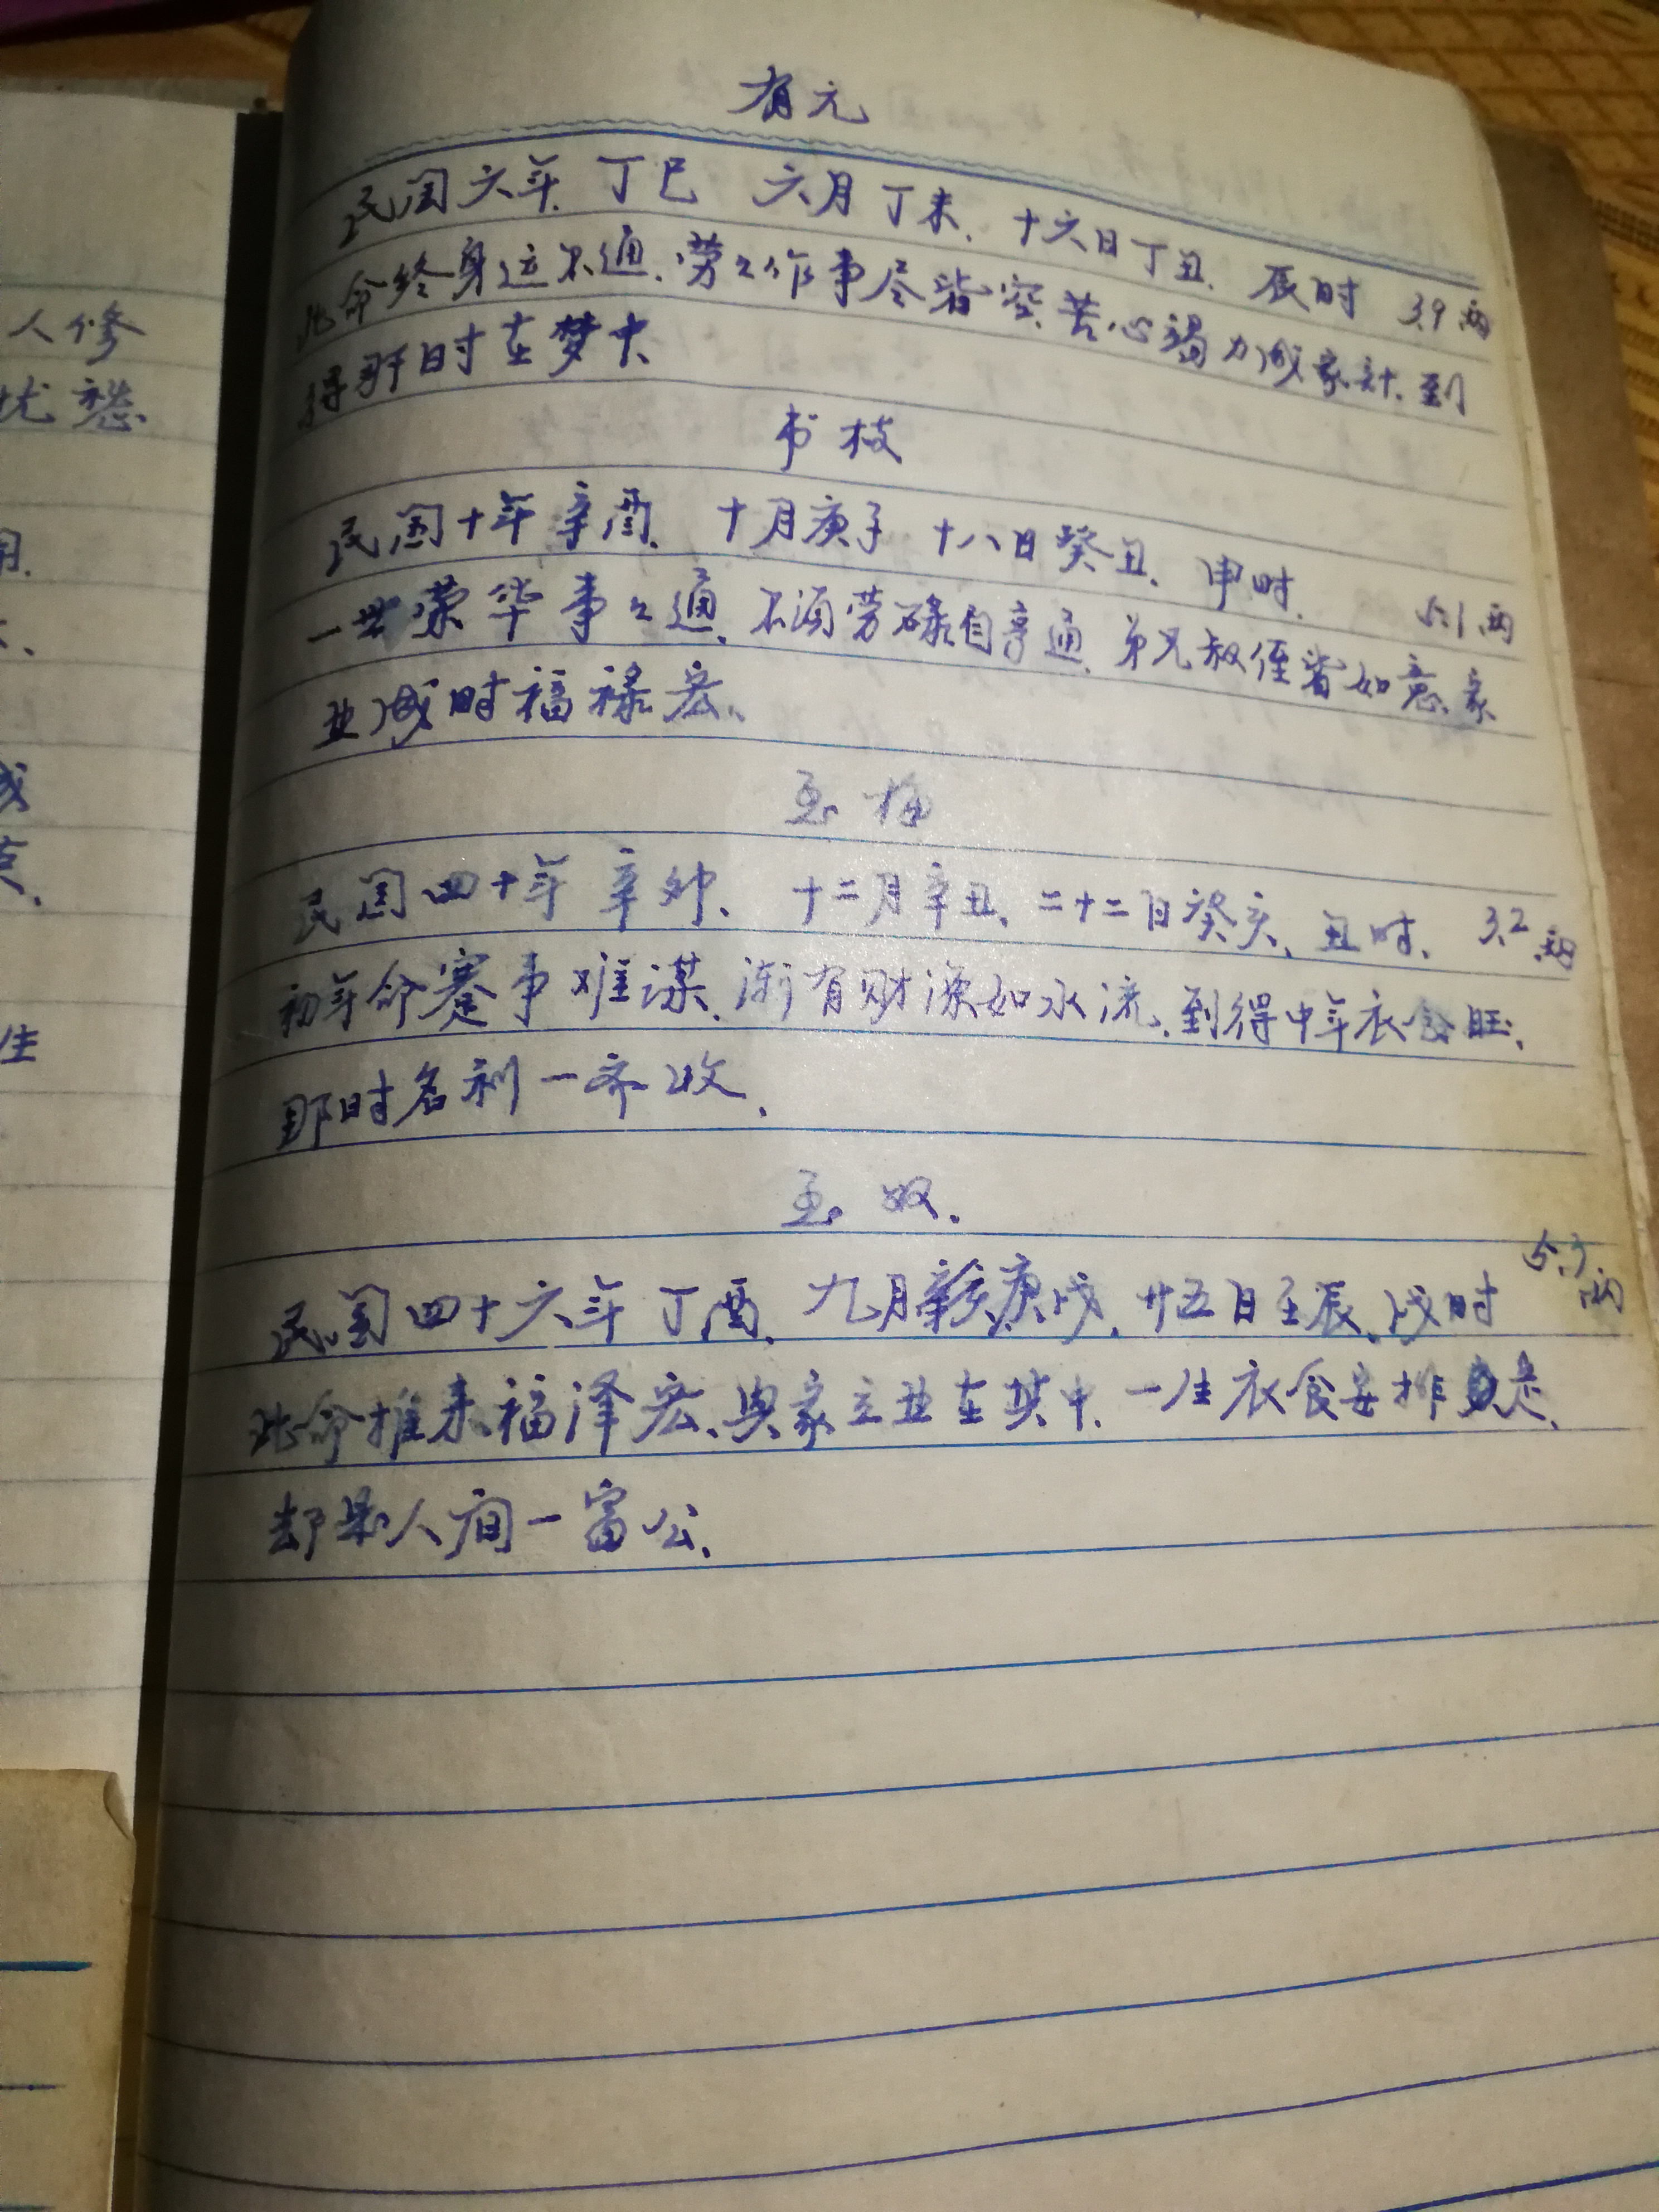 人修
忧愁
有元
民国六年 丁巳 六月丁未、十六日丁丑、辰时 3.9两
此命终身运不通、劳々作事尽皆空、苦心竭力成家计、到
得那时在梦中
书枝
民国十年辛酉、十月庚子 十八日癸丑、申时、 5.1两
一世荣华事々通、不须劳碌自亨通、弟兄叔侄皆如意、家
业成时福禄宏、
玉梅
民国四十年 辛卯、十二月辛丑、二十二日癸亥、丑时、 3.2两
初年命蹇事难谋、渐有财源如水流、到得中年衣食旺、
那时名利一齐收、
玉奴、
民国四十六年丁酉、九月庚戌、廿五日壬辰、戌时 5.3两
此命推来福泽宏、兴家立业在其中、一生衣食安排定、
却是人间一富公、